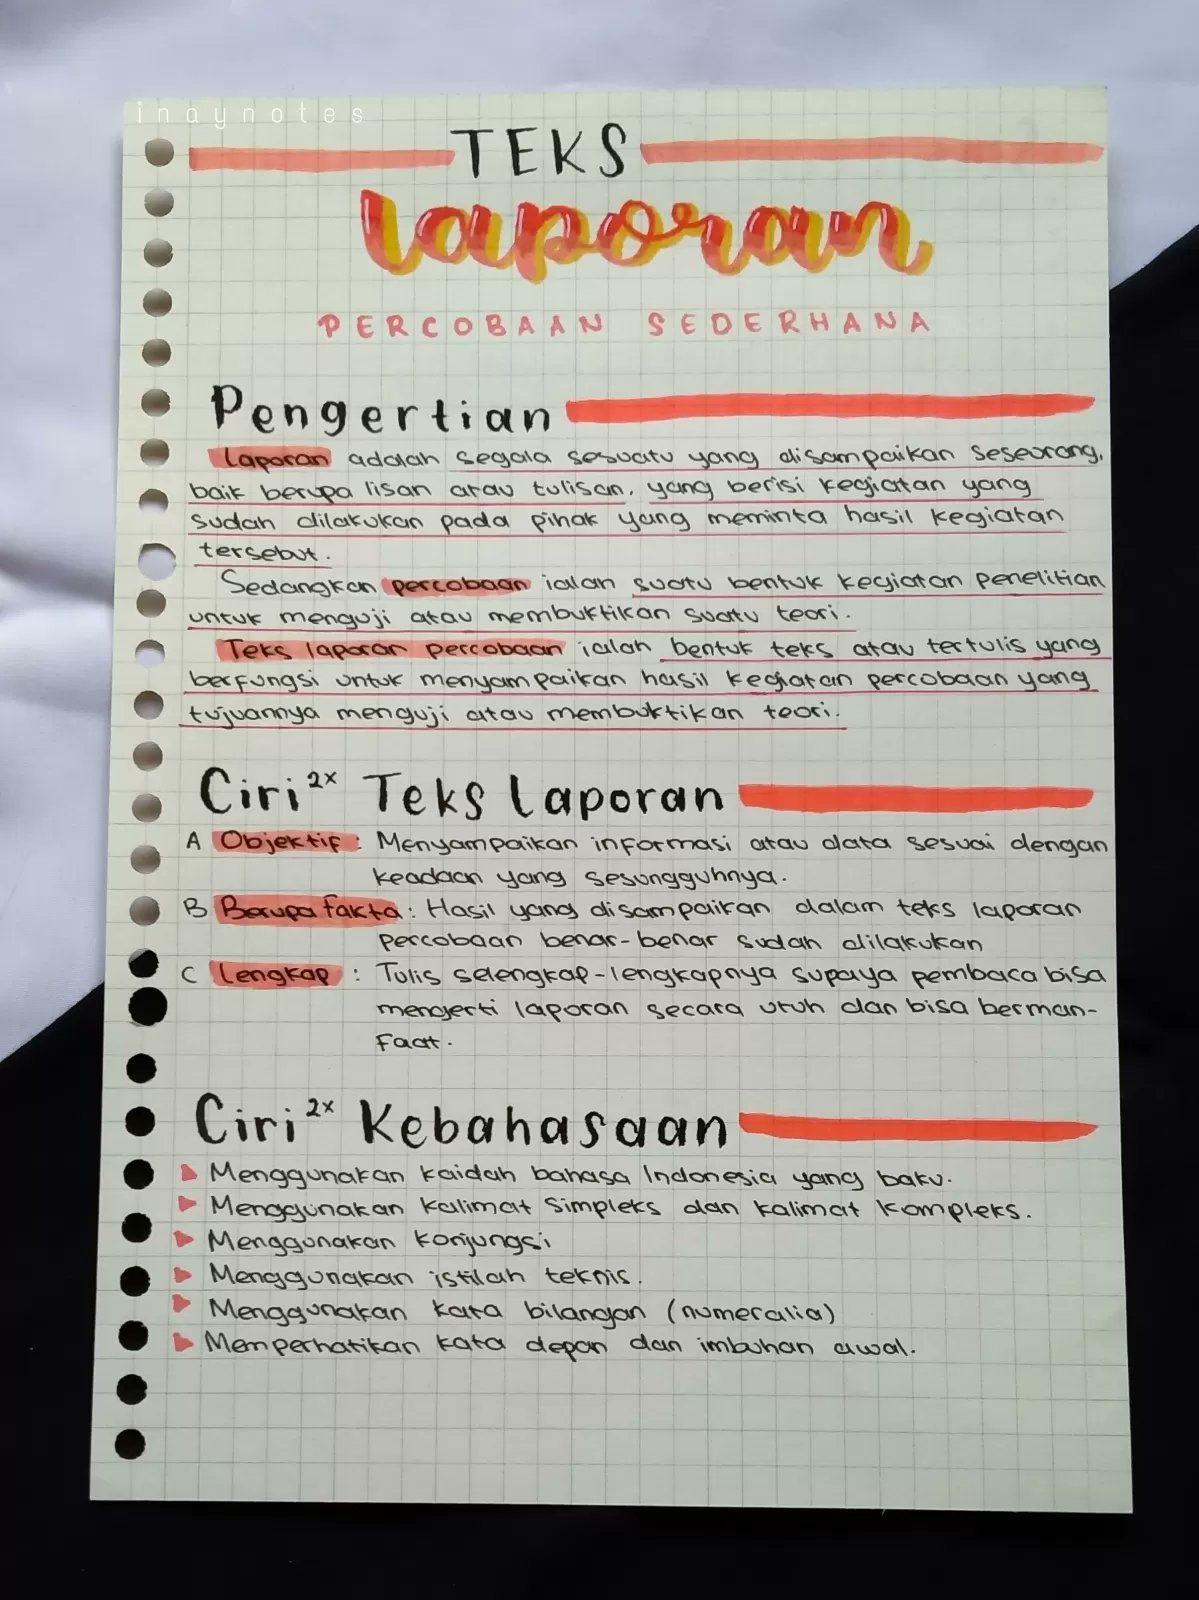 inaynotes
TEKS
laporan
PERCOBAAN SEDERHANA
Pengertian
Laporan adalah segala sesuatu yang disampaikan seseorang,
baik berupa lisan atau tulisan, yang berisi kegiatan yang
sudah dilakukan pada pihak yang meminta hasil kegiatan
tersebut.
Sedangkan percobaan ialah suatu bentuk kegiatan penelitian
untuk menguji atau membuktikan suatu teori.
Teks laporan percobaan ialah bentuk teks atau tertulis yang
berfungsi untuk menyampaikan hasil kegiatan percobaan yang
tujuannya menguji atau membuktikan teori.
Ciri²ˣ Teks Laporan
A Objektif : Menyampaikan informasi atau data sesuai dengan
keadaan yang sesungguhnya.
B Berupa fakta : Hasil yang disampaikan dalam teks laporan
percobaan benar-benar sudah dilakukan
C Lengkap : Tulis selengkap-lengkapnya supaya pembaca bisa
mengerti laporan secara utuh dan bisa berman-
faat.
Ciri²ˣ Kebahasaan
Menggunakan kaidah bahasa Indonesia yang baku.
Menggunakan kalimat simpleks dan kalimat kompleks.
Menggunakan konjungsi
Menggunakan istilah teknis.
Menggunakan kata bilangan (numeralia)
Memperhatikan kata depan dan imbuhan awal.